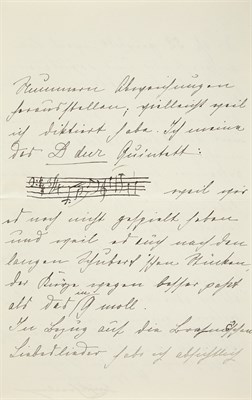 Nummern Abweichungen
herausstellen; vielleicht weil
ich diktiert habe. Ich meine
das D dur Quintett:
weil wir
es noch nicht gespielt haben
und weil es auch nach den
langen Schubert'schen
der Kürze wegen besser passt
als das G moll.
In Bezug auf die
Liebeslieder habe ich absichtlich